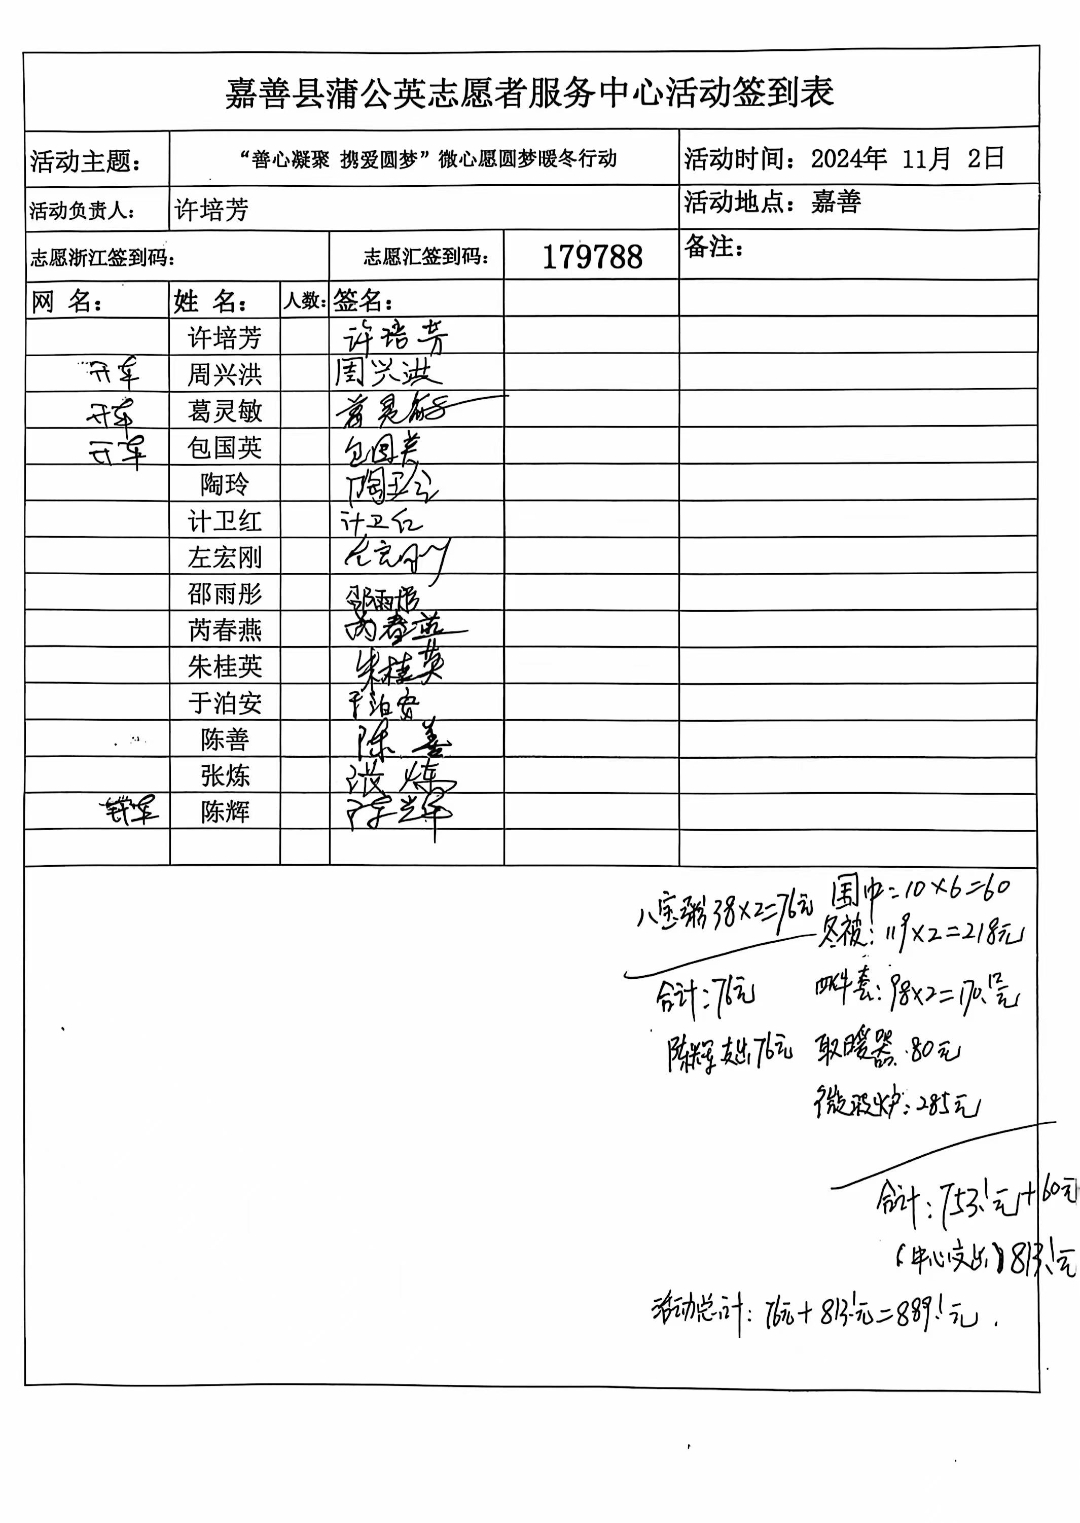 嘉善县蒲公英志愿者服务中心活动签到表
活动主题： “善心凝聚 携爱圆梦”微心愿圆梦暖冬行动 活动时间：2024年 11月 2日
活动负责人： 许培芳 活动地点：嘉善
志愿浙江签到码： 志愿汇签到码： 179788 备注：
网 名： 姓 名： 人数： 签名：
许培芳 许培芳
开车 周兴洪 周兴洪
开车 葛灵敏 葛灵敏
开车 包国英 包国英
陶玲 陶玲
计卫红 计卫红
左宏刚 左宏刚
邵雨彤 邵雨彤
芮春燕 芮春燕
朱桂英 朱桂英
于泊安 于泊安
陈善 陈善
张炼 张炼
陈辉 陈辉
八宝粥38×2=76元 围巾：10×6=60
冬被：119×2=218元
合计：76元 四件套：98×2=170.1元
陈辉支出76元 取暖器 80元
微波炉：285元
合计：753.1元+60元
（中心支出）813.1元
活动总计：76元+813.1元=889.1元.